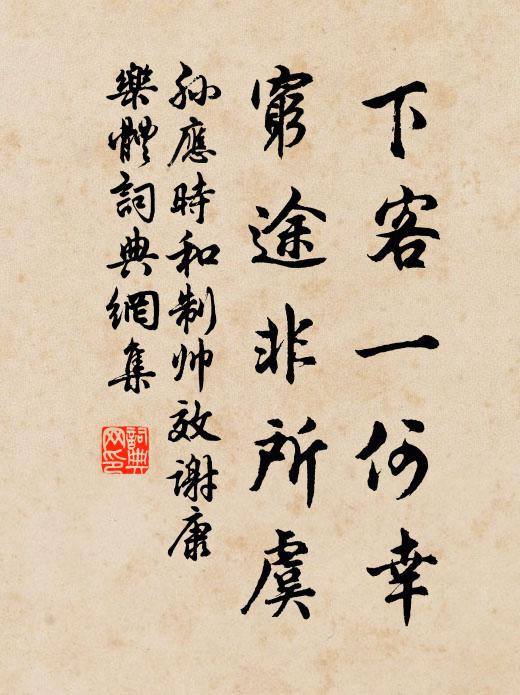 下客一何幸
窮途非所虞
孫應時和制帅效謝康
樂體詞典網集
詞典
网印